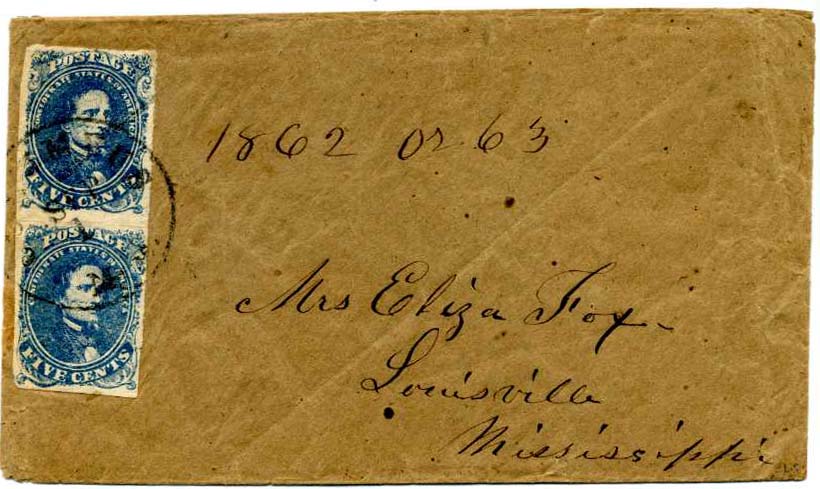 POSTAGE
CONFEDERATE STATES OF AMERICA
FIVE CENTS
POSTAGE
CONFEDERATE STATES OF AMERICA
FIVE CENTS
1862 or 63
Mrs Eliza Fox
Louisville
Mississippi